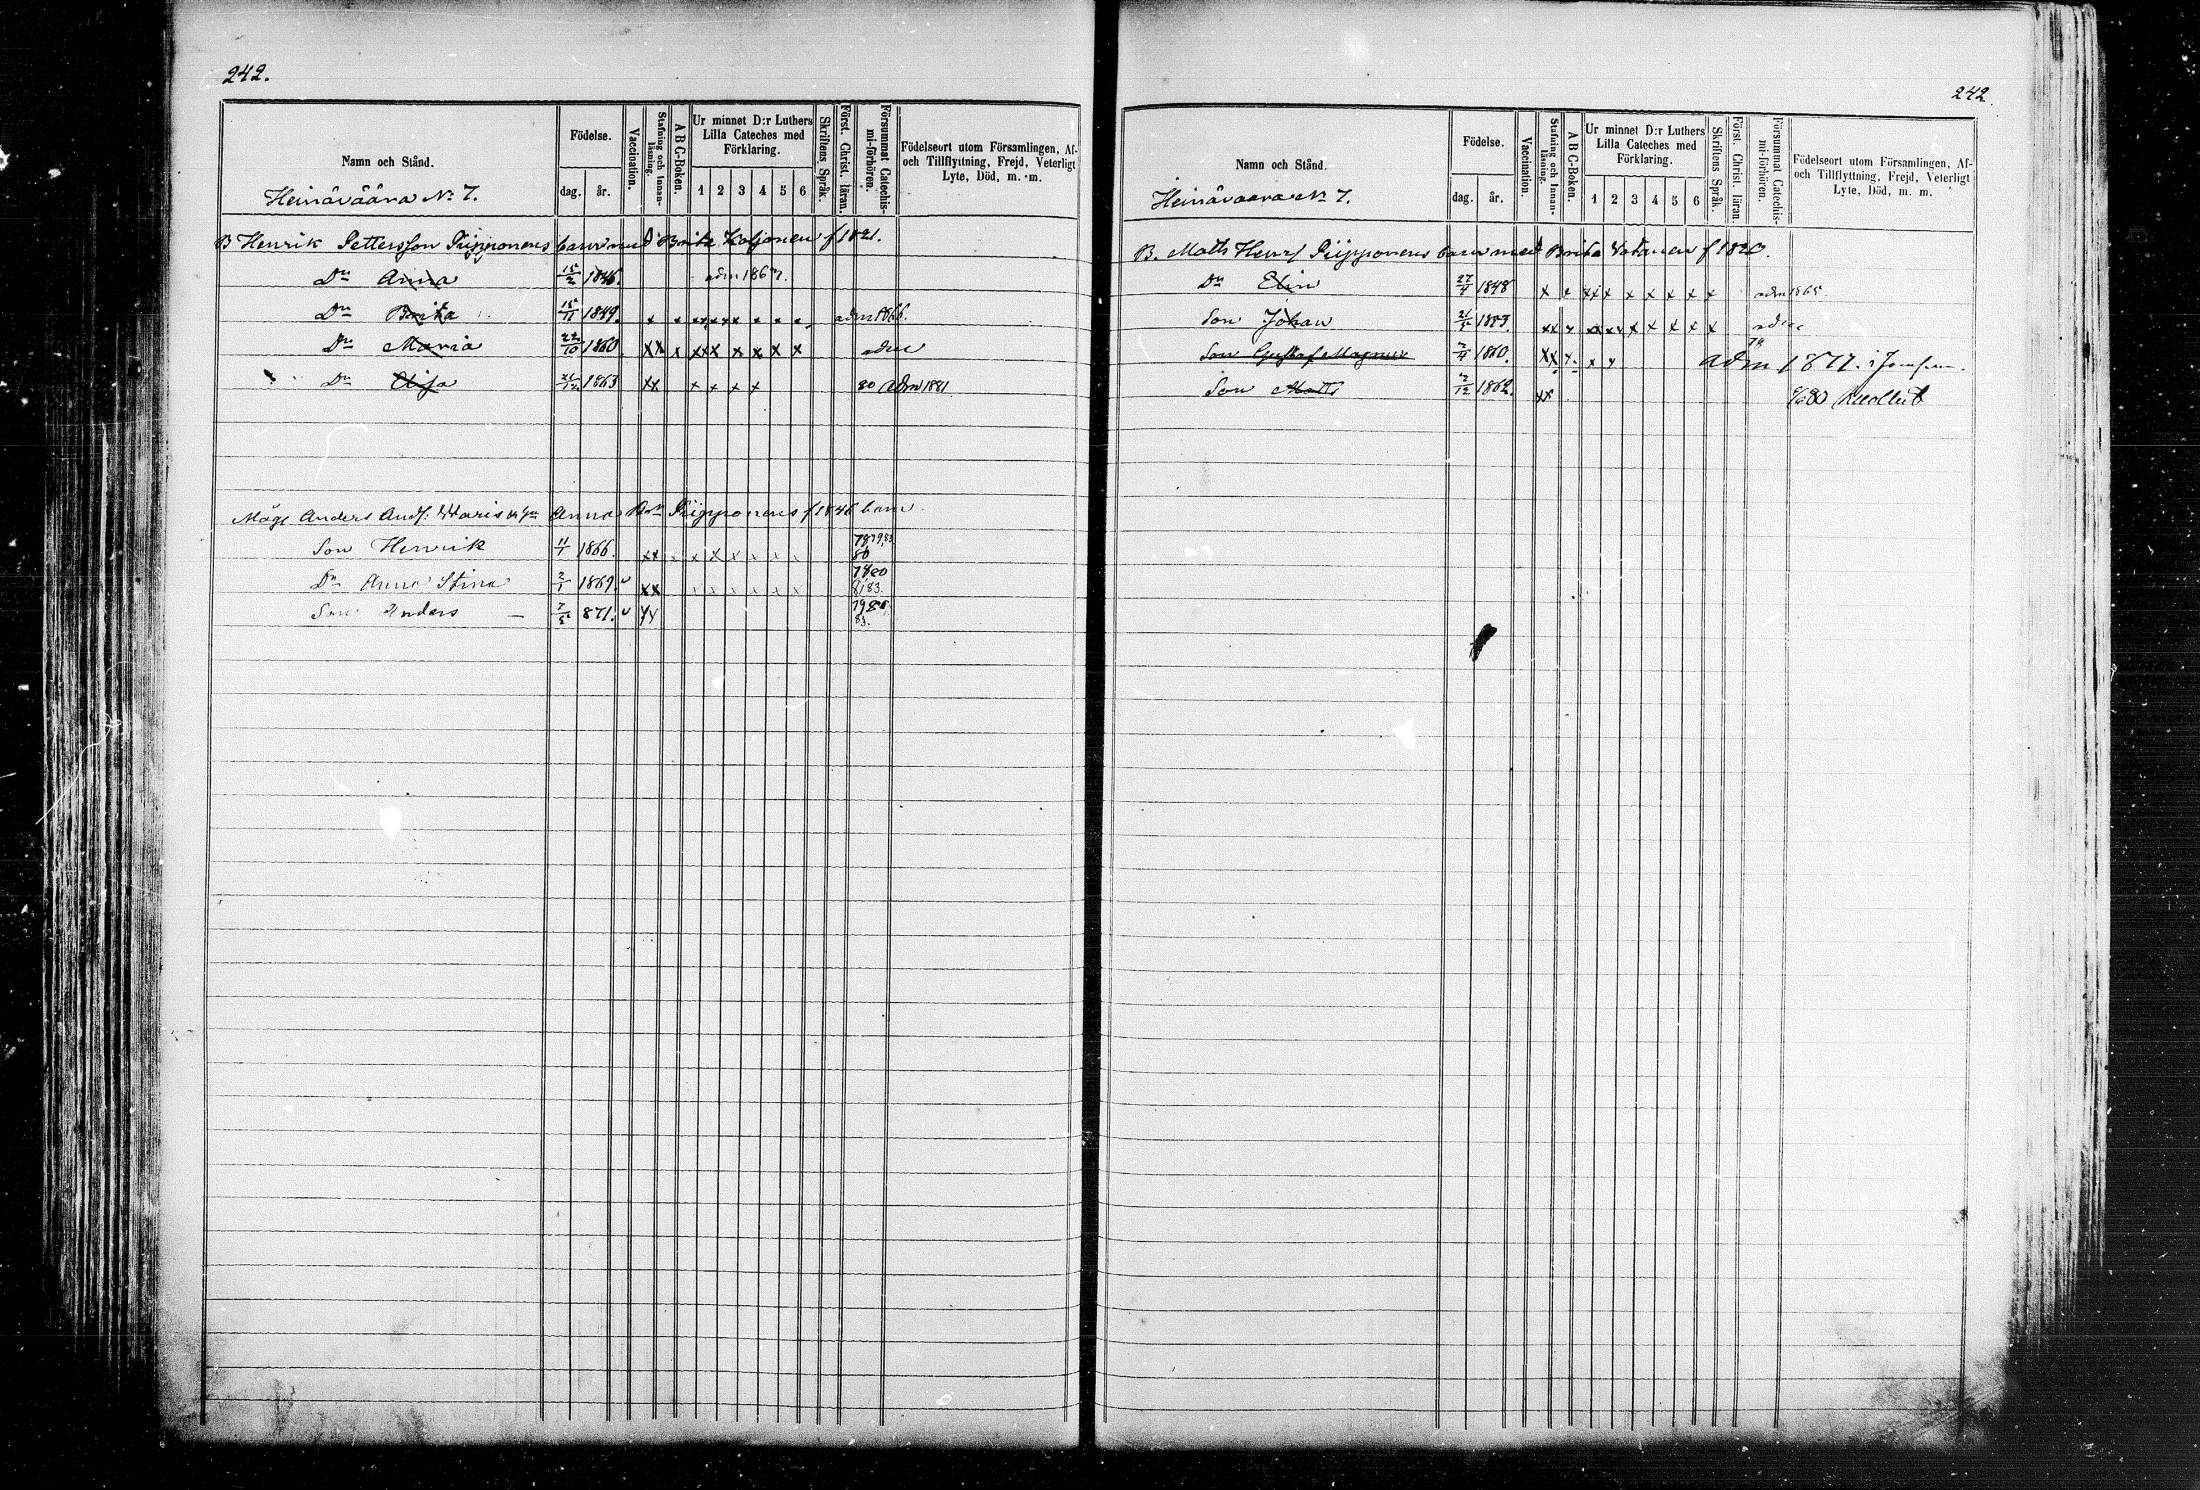 242.
Namn och Stånd.
Födelse.
dag. år.
Vaccination.
Stafning och Innan-läsning.
A B C-Boken.
Ur minnet D:r Luthers Lilla Cateches med Förklaring.
1 2 3 4 5 6
Skriftens Språk.
Först. Christ. läran.
Försummat Catechis-mi-förhören.
Födelseort utom Församlingen, Af- och Tillflyttning, Frejd, Veterligt Lyte, Död, m. m.
Heinäväära No 7.
B Henrik Pettersson Piipponens barn med Brita Koljonen f 1821.
Dr Anna 15/2 1846. adm 1867.
Dr Brita 15/11 1849. x x x x x x x x x adm 1866.
Dr Maria 22/10 1860. xx x xxx x x x x adm
Dr Elisa 21/12 1863 xx x x x x 80 adm 1881
Måge Anders And: Waris Anna Piipponens f 1846 barn
Son Henrik 11/1 1866. xx x x x x x x x 78 79, 83 80
Dr Anna Stina 2/1 1869. v xx x x x x x x 78 80 81 83.
Son Anders — 7/5 871. v xx 79 80 83.
242.
Namn och Stånd.
Födelse.
dag. år.
Vaccination.
Stafning och Innan-läsning.
A B C-Boken.
Ur minnet D:r Luthers Lilla Cateches med Förklaring.
1 2 3 4 5 6
Skriftens Språk.
Först. Christ. läran.
Försummat Catechis-mi-förhören.
Födelseort utom Församlingen, Af- och Tillflyttning, Frejd, Veterligt Lyte, Död, m. m.
Heinävaara No 7.
B. Matts Henr/ Piipponens barn med Brita Vatanen f 1820.
Dr Elin 27/4 1848 x x xx x x x x x x adm 1865.
Son Johan 21/5 1853. xx x xx xx x x x x x adm
Son Gustaf Magnus 2/4 1860. xx x x x 78 adm 1877. i
Son Matts 2/12 1862. xx 80